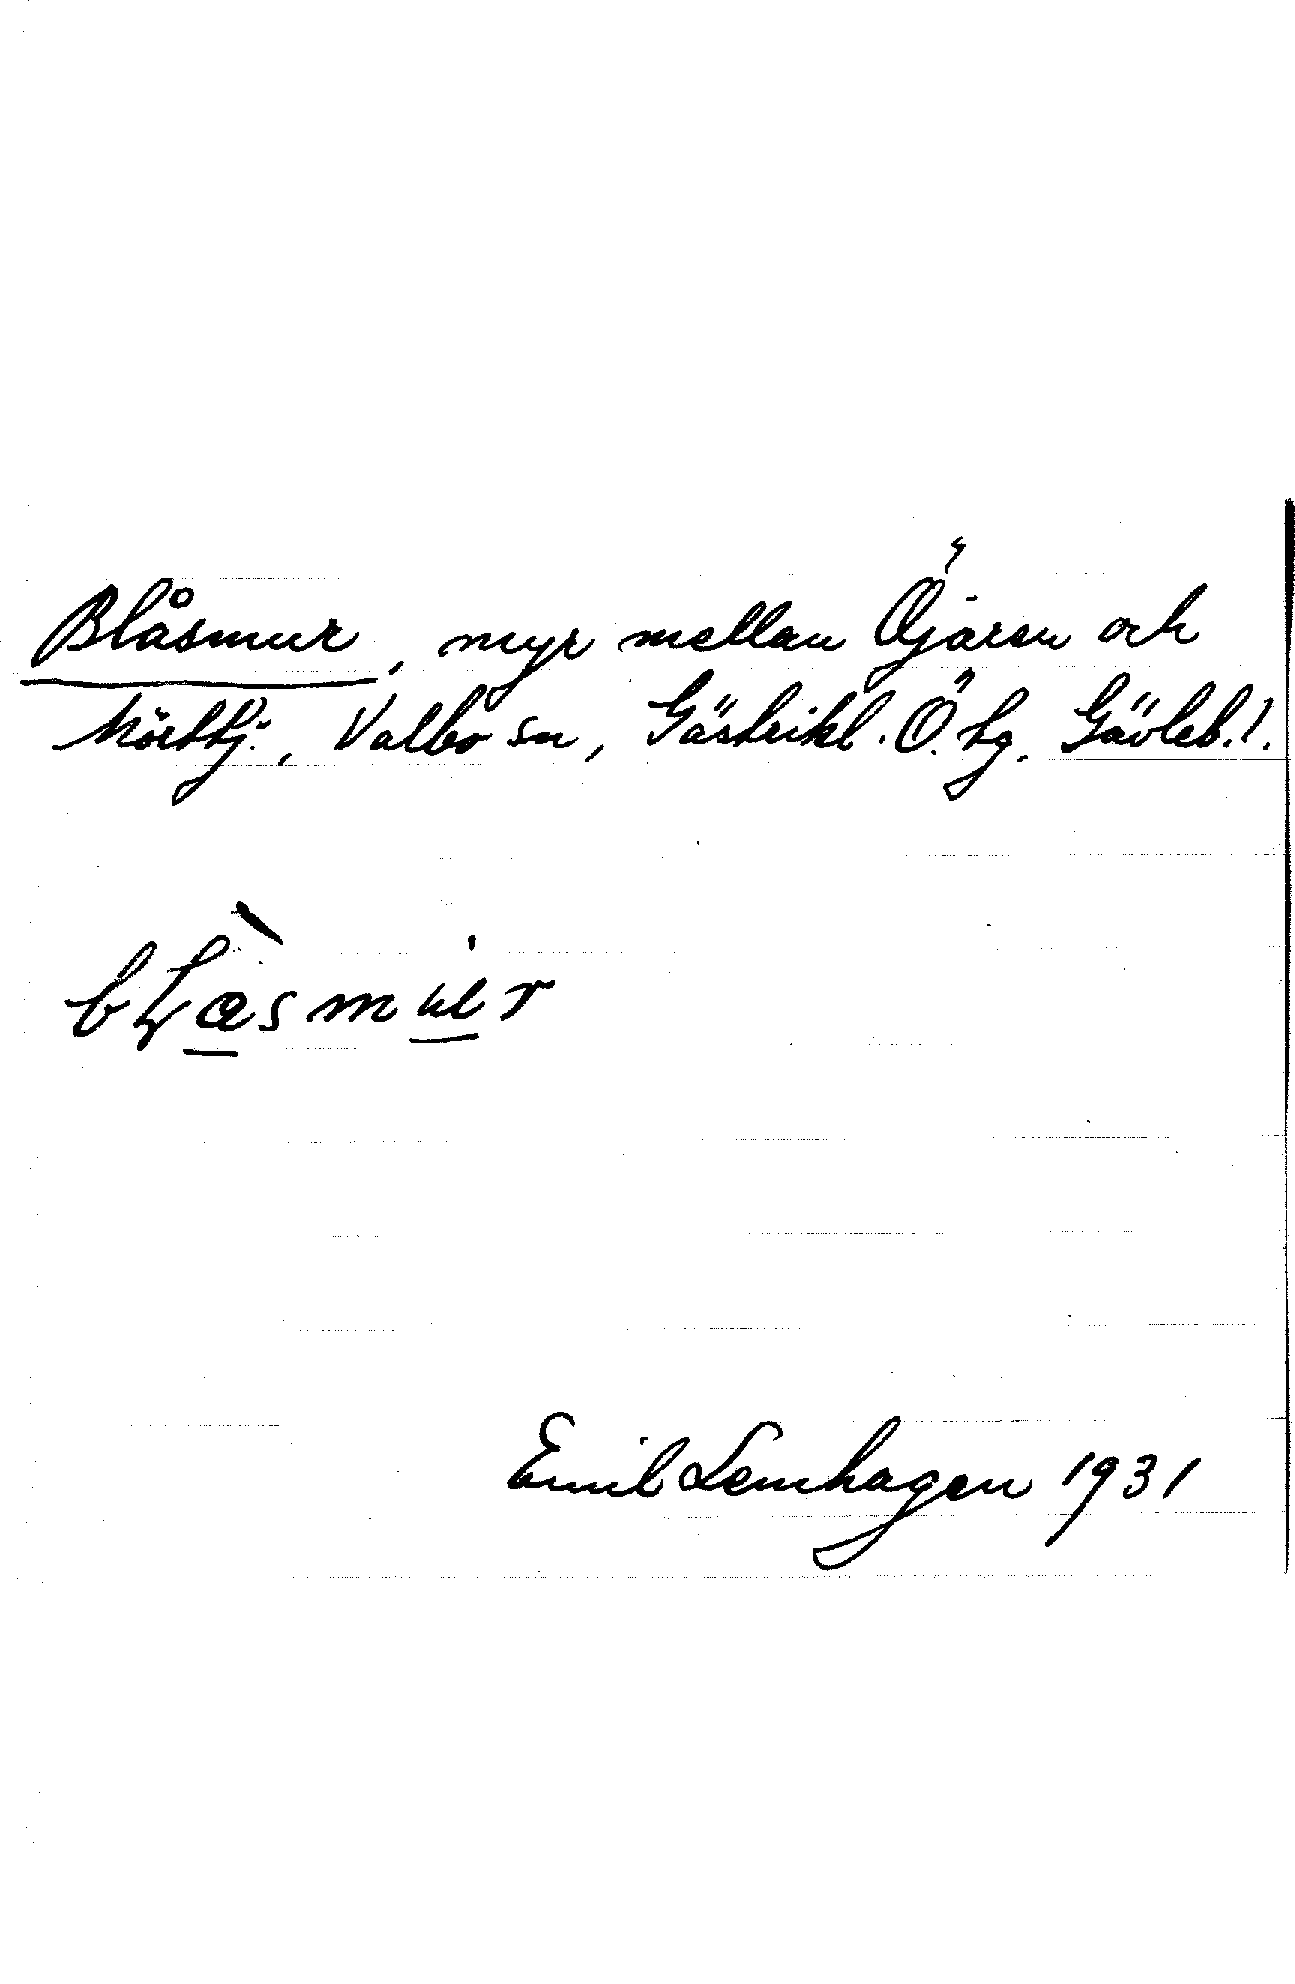 Blåsmur, myr mellan Öjaren och
Mörttj:, Valbo sn, Gästrikl. Ö. tg. Gävleb. l.
Emil Lemhagen 1931